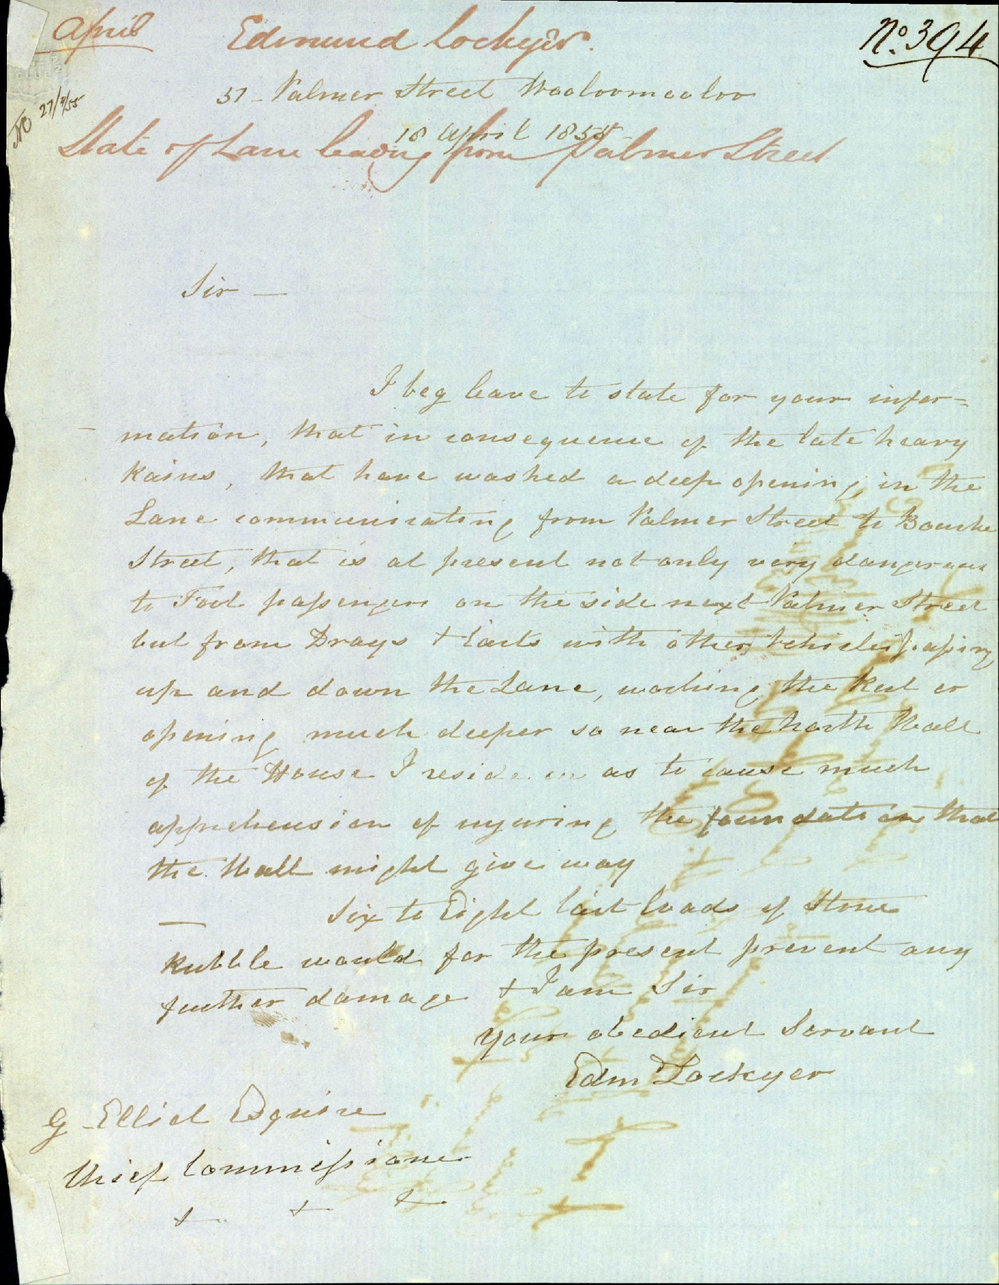 April
Edmund Lockyer.
No. 394
27/4/55
51 - Palmer Street Wooloomooloo
18 April 1855
State of Lane leading from Palmer Street
Sir —
I beg leave to state for your infor=
mation, that in consequence of the late heavy
Rains, that have washed a deep opening in the
Lane communicating from Palmer Street to Bourke
Street, that is at present not only very dangerous
to Foot passengers on the side next Palmer Street
but from Drays & Carts with other Vehicles passing
up and down the Lane, working the Rut or
opening much deeper so near the North Wall
of the House I reside in as to cause much
apprehension of injuring the foundation that
the Wall might give way
Six to Eight Cart loads of Stone
Rubble would for the present prevent any
further damage & I am Sir
Your obedient Servant
Edm Lockyer
G Elliot Esquire
Chief Commissioner
& & &